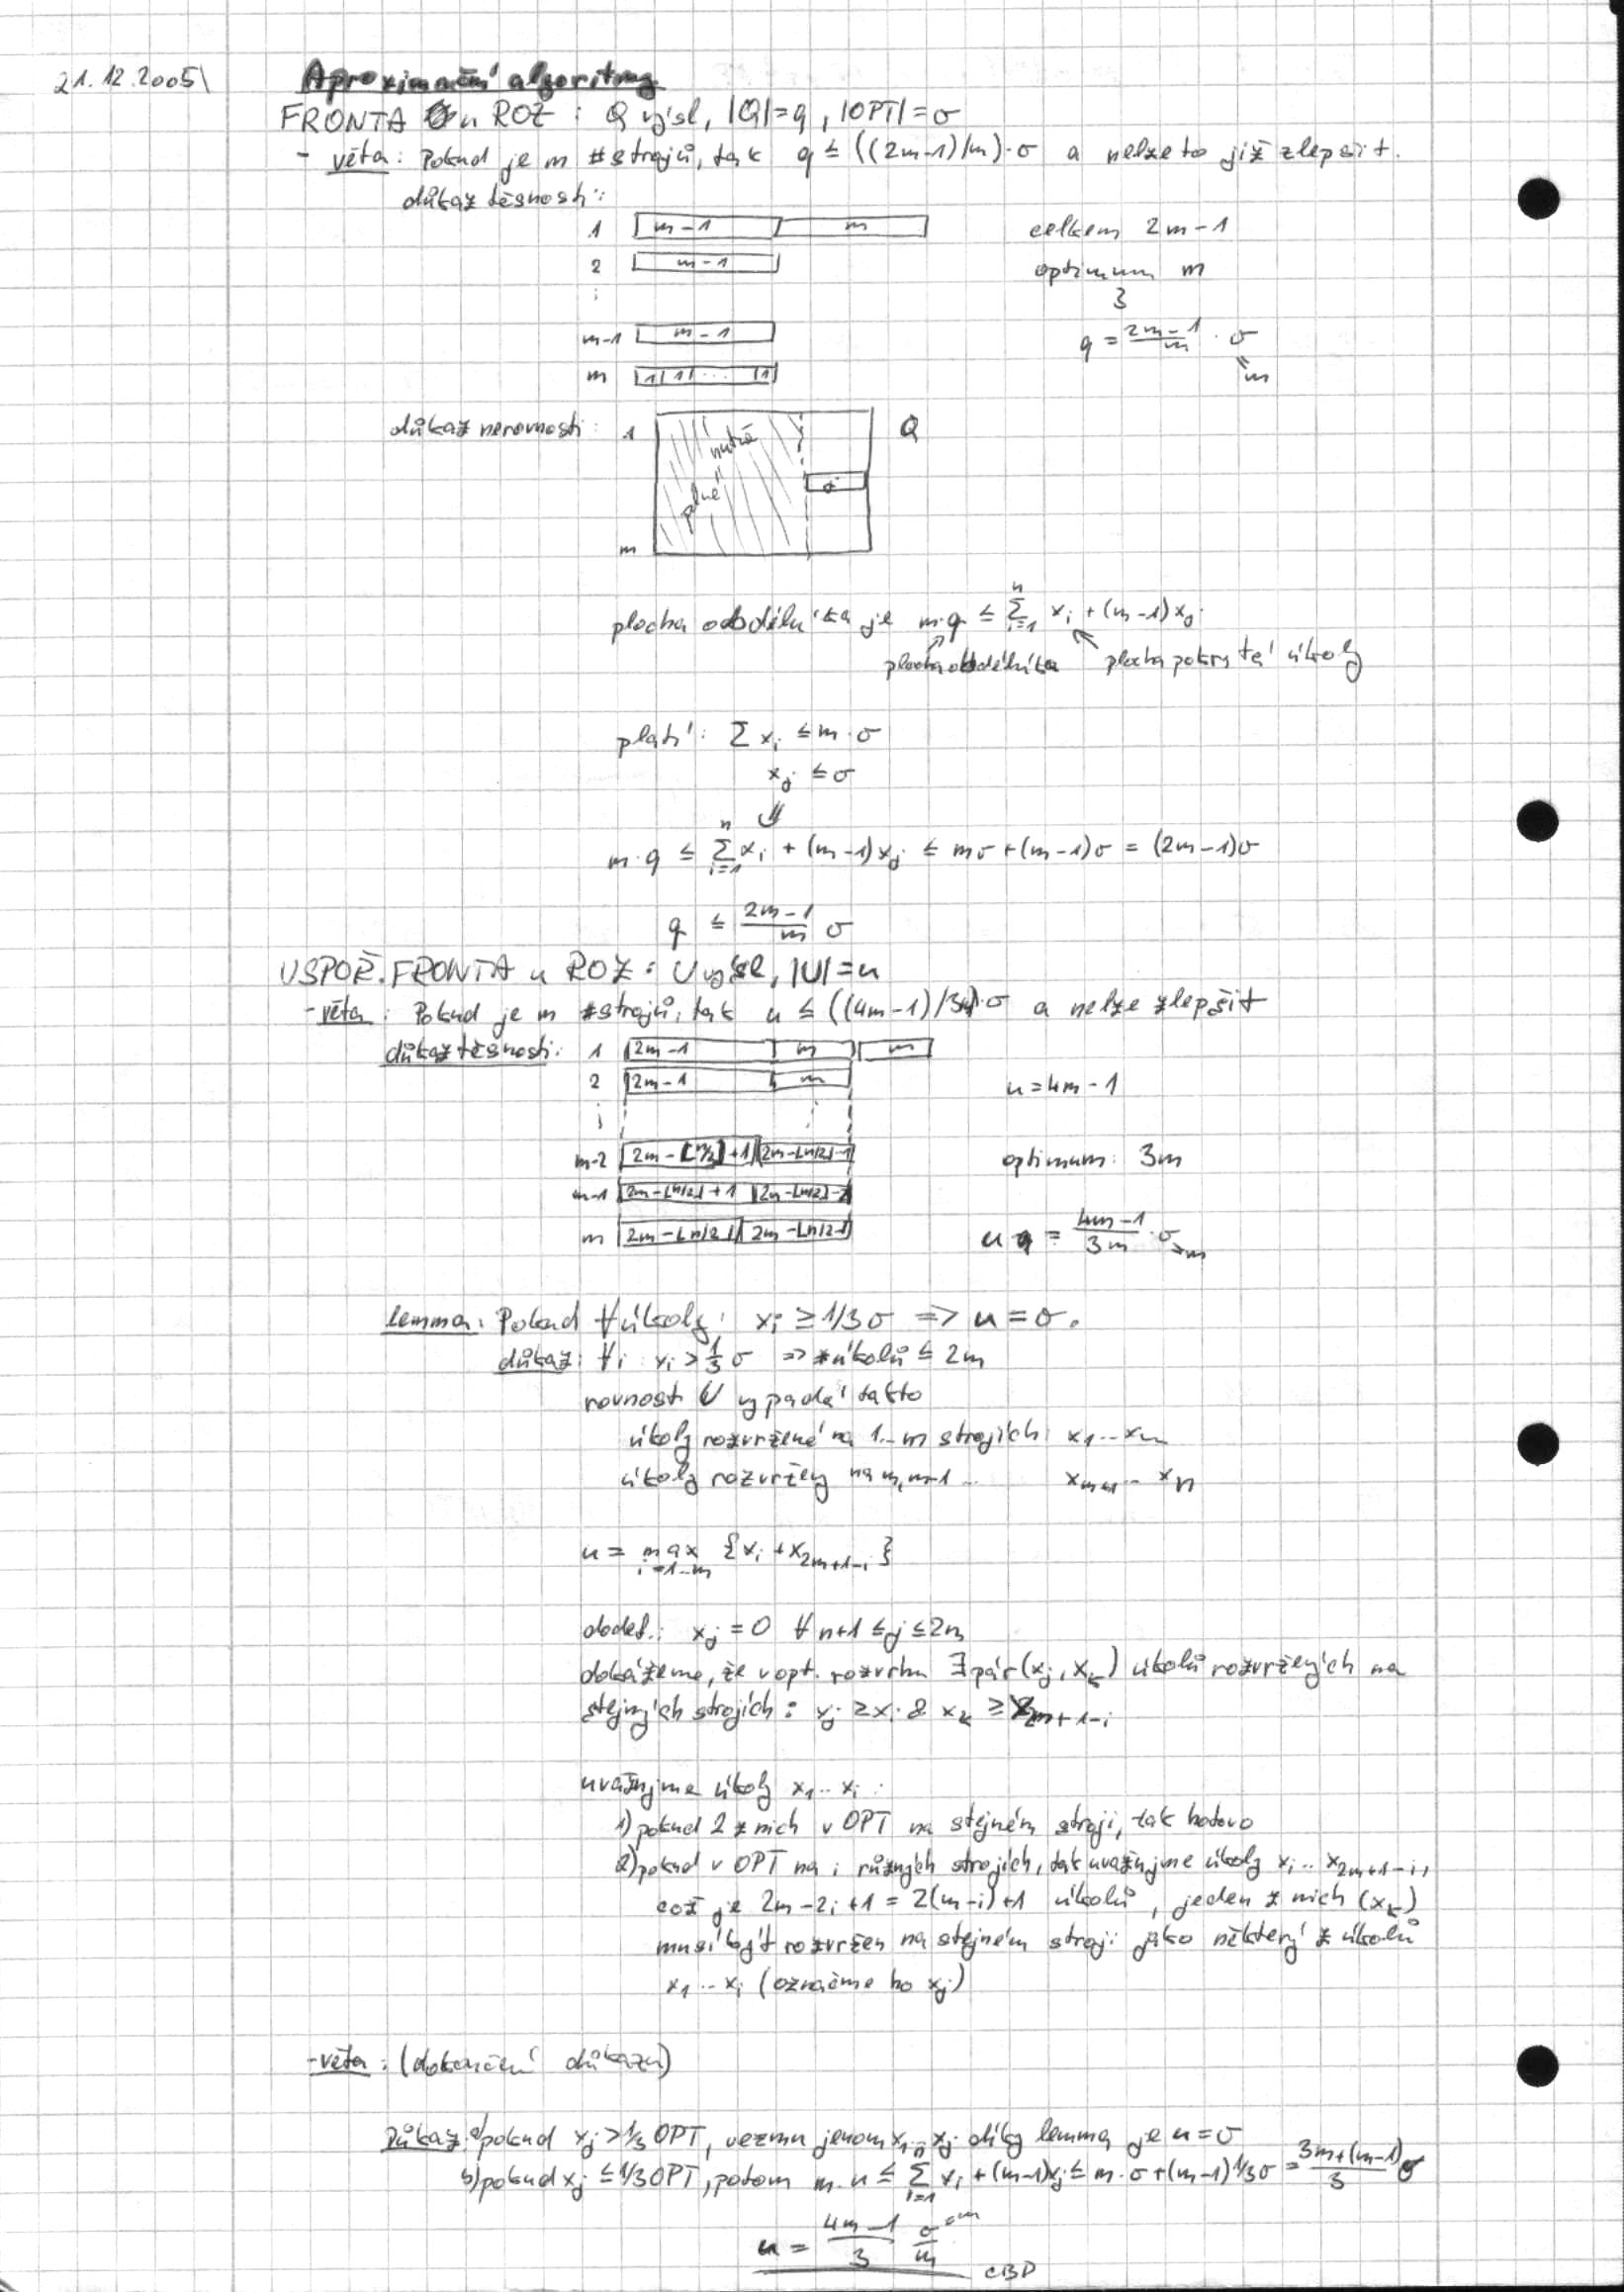 21.12.2005
Aproximační algoritmy
FRONTA u ROZ : Q výsl, |Q|=q, |OPT|=σ
- věta: Pokud je m #strojů, tak q ≤ ((2m-1)/m)·σ a nelze to již zlepšit.
důkaz těsnosti:
1 m-1 m celkem 2m-1
2 m-1 optimum m
⋮ 3
m-1 m-1 q = (2m-1)/m · σ
m 1 1 ... 1 = m
důkaz nerovnosti: 1 nutně Q
plné
m
plocha obdélníka je m·q ≤ Σ_{i=1}^{n} x_i + (m-1)x_j
plocha obdélníka plocha pokrytá úkoly
platí: Σ x_i ≤ m·σ
x_j ≤ σ
⇓
m·q ≤ Σ_{i=1}^{n} x_i + (m-1)x_j ≤ mσ + (m-1)σ = (2m-1)σ
q ≤ (2m-1)/m σ
USPOŘ. FRONTA u ROZ: U výsl, |U|=u
- věta: Pokud je m #strojů, tak u ≤ ((4m-1)/3m)·σ a nelze zlepšit
důkaz těsnosti: 1 2m-1 m m
2 2m-1 m u=4m-1
⋮
m-2 2m-⌊m/2⌋+1 2m-⌊m/2⌋-1 optimum: 3m
m-1 2m-⌊m/2⌋+1 2m-⌊m/2⌋-2
m 2m-⌊m/2⌋ 2m-⌊m/2⌋ u = (4m-1)/3m · σ
lemma: Pokud ∀úkoly: x_i ≥ 1/3 σ ⇒ u = σ.
důkaz: ∀i x_i > 1/3 σ ⇒ #úkolů ≤ 2m
rovnost U vypadá takto
úkoly rozvržené na 1..m strojích: x_1...x_m
úkoly rozvrženy na m, m-1 ... x_{m+1}...x_n
u = max_{i=1..m} {x_i + x_{2m+1-i}}
dodef.: x_j = 0 ∀ n+1 ≤ j ≤ 2m
dokážeme, že v opt. rozvrhu ∃ pár (x_j, x_k) úkolů rozvržených na
stejných strojích: x_j ≥ x_i & x_k ≥ x_{2m+1-i}
uvažujme úkoly x_1..x_i :
1) pokud 2 z nich v OPT na stejném stroji, tak hotovo
2) pokud v OPT na i různých strojích, tak uvažujme úkoly x_i..x_{2m+1-i},
což je 2m-2i+1 = 2(m-i)+1 úkolů, jeden z nich (x_k)
musí být rozvržen na stejném stroji jako některý z úkolů
x_1...x_i (označme ho x_j)
- věta: (dokončení důkazu)
Důkaz: a) pokud x_j > 1/3 OPT, vezmu jenom x_1..x_j díky lemma je u=σ
b) pokud x_j ≤ 1/3 OPT, potom m·u ≤ Σ_{i=1}^{n} x_i + (m-1)x_j ≤ m·σ + (m-1) 1/3 σ = (3m+(m-1))/3 σ
u = (4m-1)/3 σ/m
CBD